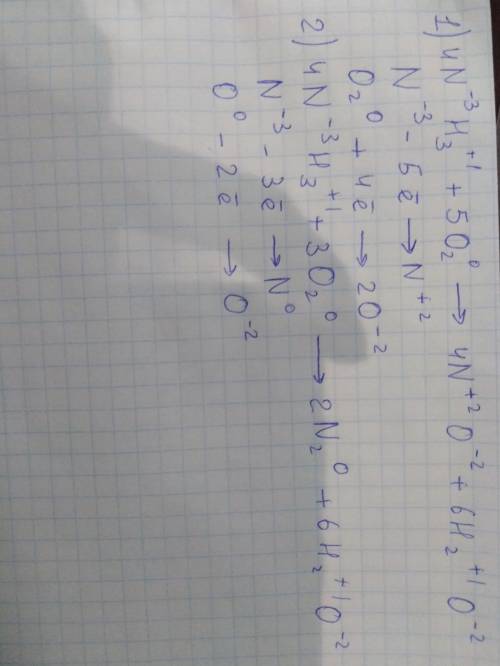 1) 4N⁻³H₃⁺¹ + 5O₂⁰ → 4N⁺²O⁻² + 6H₂⁺¹O⁻²
N⁻³ - 5ē → N⁺²
O₂⁰ + 4ē → 2O⁻²
2) 4N⁻³H₃⁺¹ + 3O₂⁰ → 2N₂⁰ + 6H₂⁺¹O⁻²
N⁻³ - 3ē → N⁰
O⁰ - 2ē → O⁻²